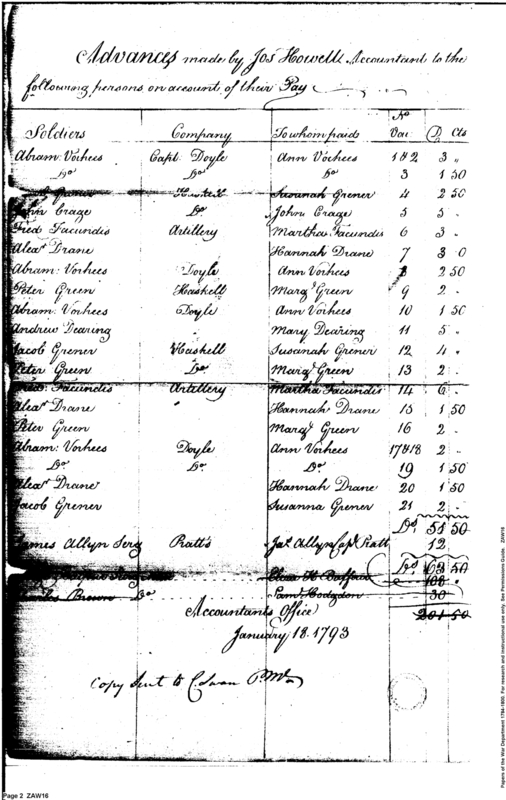 Advances made by Jos Howell Accountant to the
following persons on account of their Pay
Soldiers Company To whom paid No Vou D Cts
Abram: Vorhees Capt. Doyle Ann Vorhees 1 & 2 3 "
Do Do Do 3 1 50
Grener Haskell Susanah Grener 4 2 50
John Crage Do John Crage 5 5 "
Fred Facundis Artillery Martha Facundis 6 3 "
Alexr Drane Hannah Drane 7 3 0
Abram: Vorhees Doyle Ann Vorhees 8 2 50
Peter Green Haskell Margt Green 9 2 "
Abram: Vorhees Doyle Ann Vorhees 10 1 50
Andrew Dearing " Mary Dearing 11 5 "
Jacob Grener Haskell Susanah Grener 12 4 "
Peter Green Do Margt Green 13 2 "
Fred. Facundis Artillery Martha Facundis 14 6 "
Alexr Drane " Hannah Drane 15 1 50
Peter Green Margt Green 16 2 "
Abram: Vorhees Doyle Ann Vorhees 17 & 18 2 "
Do Do Do 19 1 50
Alexr Drane Hannah Drane 20 1 50
Jacob Grener Susanna Grener 21 2 "
Ds 51 50
James Allyn Serg Pratts Jas Allyn Capt Pratt 12 "
Ds 63 50
108 "
Charles Brown Do Saml Hodgdon 30
201 50
Accountants Office
January 18. 1793
Copy Sent to C. Swan P.M.
Page 2 ZAW16
Papers of the War Department 1784-1800. For research and instructional use only. See Permissions Guide. ZAW16